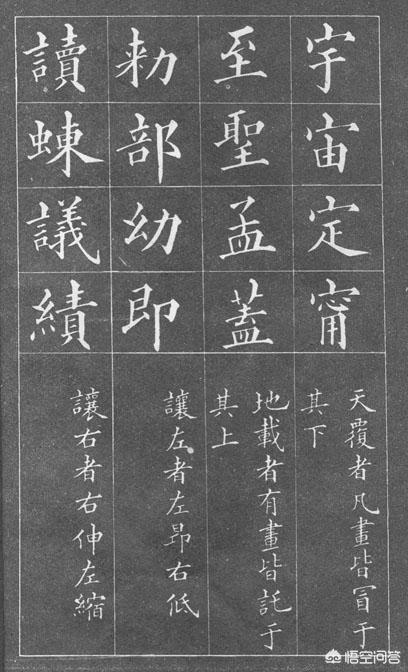 宇宙定甯
天覆者凡畫皆冒于
其下
至聖孟蓋
地載者有畫皆託于
其上
勑部幼即
讓左者左昂右低
讀蝀議績
讓右者右伸左縮
悟空问答